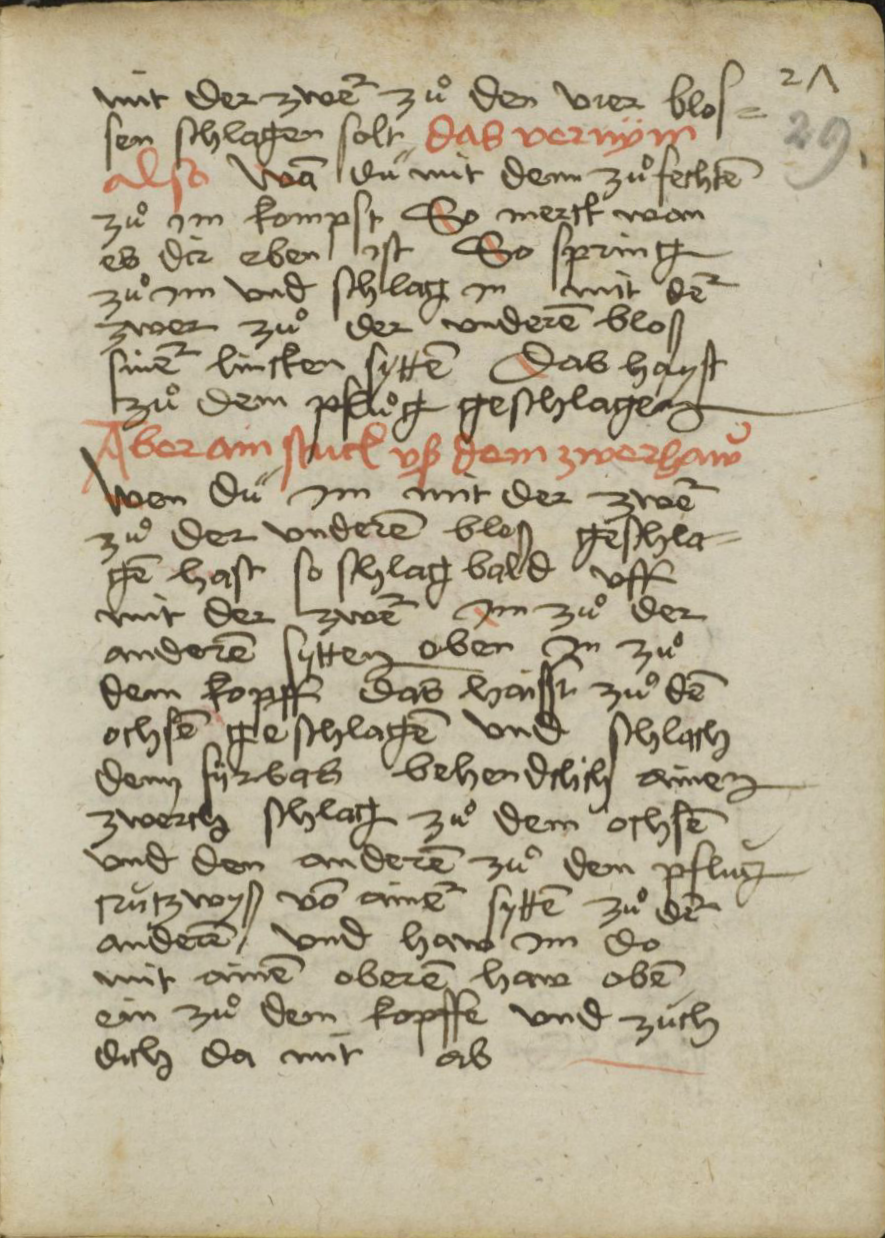 21
29
mit der zwer̄ zů den vier blos=
sen schlagen solt das vernÿm
also Wā du mit dem zůfechtē
zů im kompst So merck wan
es dir eben ist So spring
zů im vnd schlag in mit der̄
zwer zů der vnderē bloß
siner̄ lincken syttē Das hayst
zů dem pflůg geschlagen
Aber ain stuck vß dem zwerhaw
Wen du im mit der zwer̄
zů der vnderē bloß geschla=
gē hast so schlag bald vff
mit der zwer̄ im zů der
anderē sytten oben in zů
dem kopff das haisst zů dē
ochsē geschlagē vnd schlach
denn fürbas behendclich ainen
zwerch schlag zů dem ochsē
vnd den anderē zů dem pflug
crützwyß vō ainer̄ syttē zů der̄
anderē / vnd haw im do
mit ainē oberē haw obē
ein zů dem kopffe vnd züch
dich da mit ab